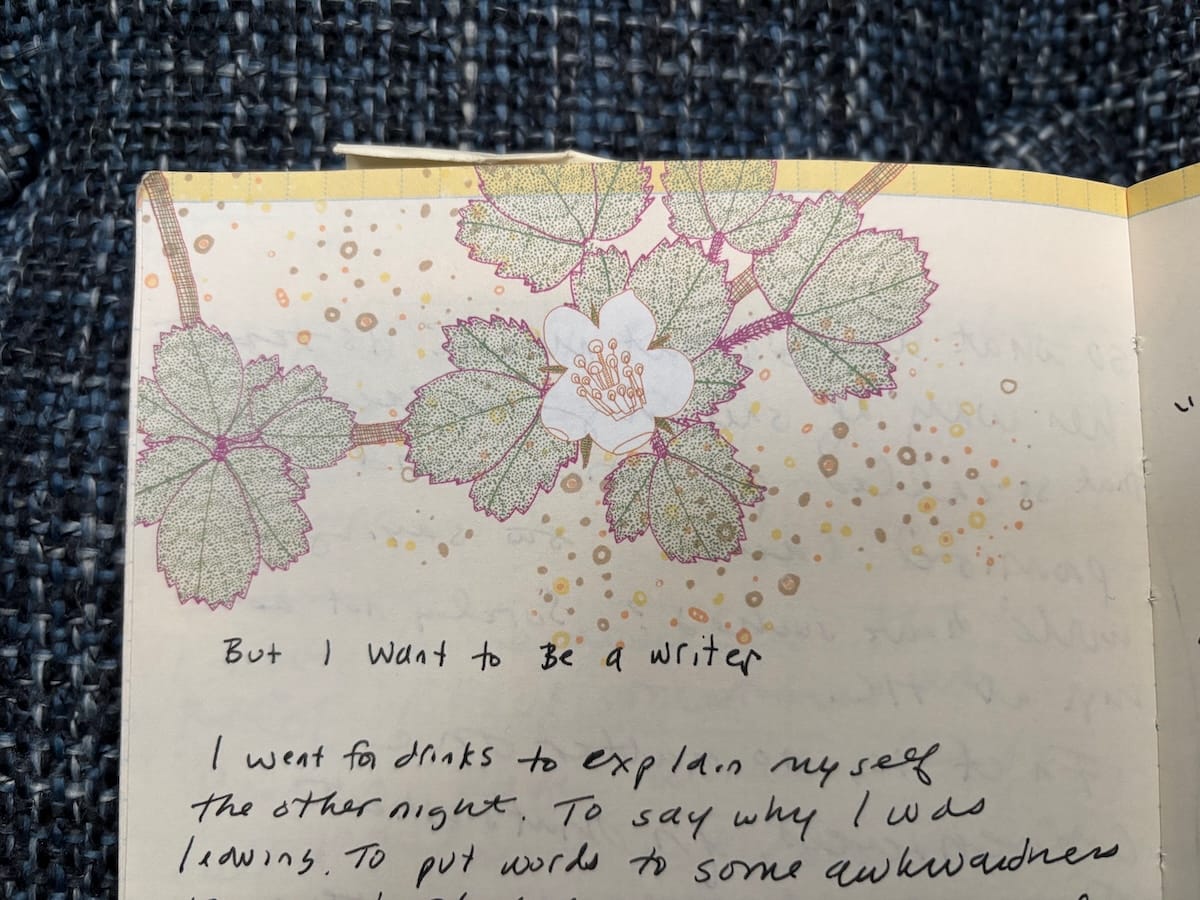 But I want to Be a writer
I went for drinks to explain myself
the other night. To say why I was
leaving. To put words to some awkwardness